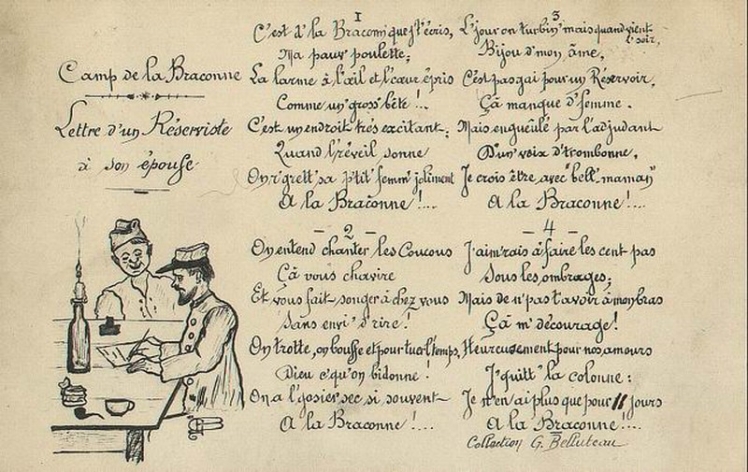 Camp de la Braconne
Lettre d'un Réserviste
à son épouse
1
C'est d'la Braconn' que j't'écris,
Ma pauv' poulette;
La larme à l'œil et l'cœur épris
Comme un' gross' bête !..
C'est un endroit très excitant;
Quand l'réveil sonne
On r'grett' sa p'tit' femm' joliment
A la Braconne !....
- 2 -
On entend chanter les Coucous
Çà vous chavire
Et vous fait songer à chez vous
Sans envi' d'rire !
On trotte, on bouffe et pour tuer l'temps,
Dieu c'qu'on bidonne !
On a l'gosier sec si souvent
A la Braconne !....
3
L'jour on turbin' mais quand vient l'soir,
Bijou d'mon âme,
C'est pas gai pour un Reservoir,
Çà manque d'femme.
Mais engueulé par l'adjudant
D'un' voix d'trombonne,
Je crois être avec "bell' maman"
A la Braconne !....
- 4 -
J'aim'rais à faire les cent pas
Sous les ombrages;
Mais de n'pas t'avoir à mon bras
Çà m' décourage !
Heureusement pour nos amours
J'quitt' la colonne :
Je n'en ai plus que pour 11 jours
A la Braconne !....
Collection G. Belluteau